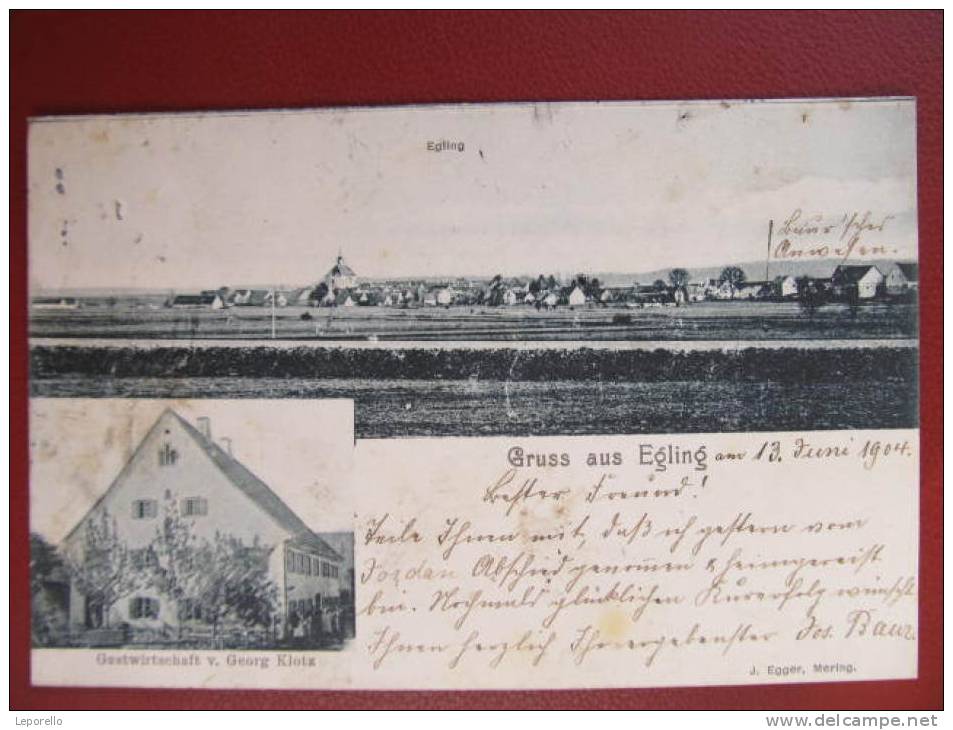 Egling
Baur'sches
Anwesen.
Gruss aus Egling am 13. Juni 1904.
Bester Freund!
Teile Ihnen mit, daß ich gestern vom
Abschied genommen & heimgereist
bin. Nochmals glücklichen Kurerfolg wünscht
Ihnen herzlich Ihr ergebenster Jos. Baur.
Gastwirtschaft v. Georg Klotz
J. Egger, Mering.
Leporello
www.delcampe.net